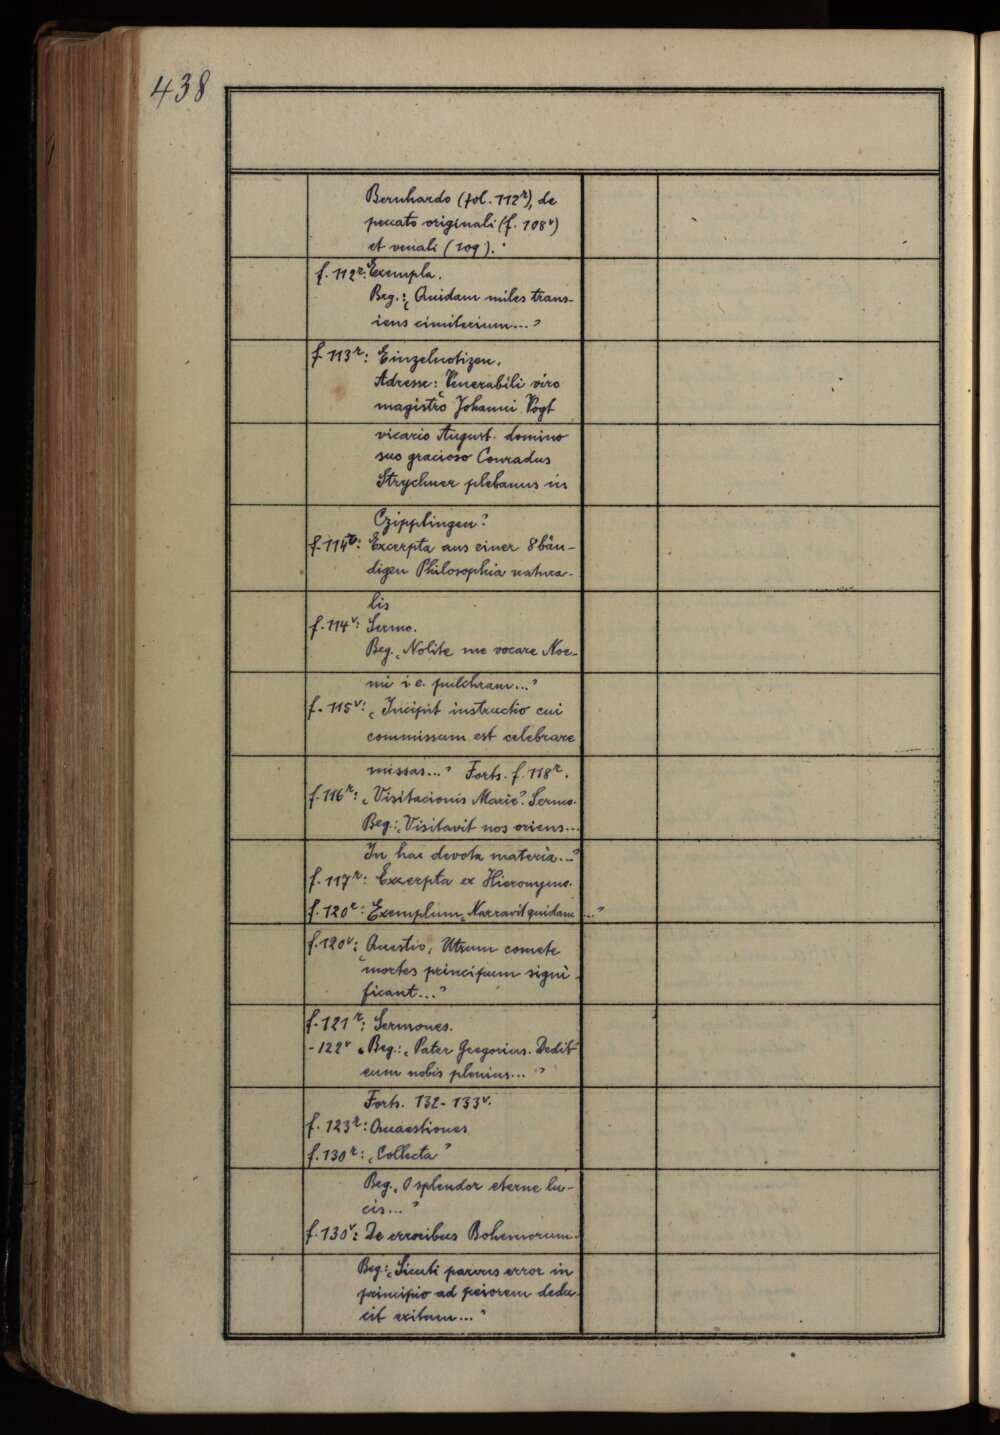 438
Bernhardo (fol. 112r), de
peccato originali (f. 108v)
et venali (109).
f. 112r: Exempla.
Beg.: „Quidam miles trans-
iens cimiterium..."
f. 113r: Einzelnotizen.
Adresse: „Venerabili viro
magistro Johanni Vogt
vicario August. domino
suo gracioso Conradus
Strychner plebanus in
Czipplingen"
f. 114r: Excerpta aus einer 8 bän-
digen Philosophia natura-
lis
f. 114v: Sermo.
Beg. „Nolite me vocare Noe-
mi i.e. pulchram..."
f. 115v: „Incipit instructio cui
commissum est celebrare
missas..." Forts. f. 118r.
f. 116r: „Visitacionis Marie". Sermo.
Beg.: „Visitavit nos oriens...
In hac devota materia..."
f. 117r: Excerpta ex Hieronymo.
f. 120r: Exemplum „Narravit quidam..."
f. 120v: Quaestio, „Utrum comete
mortes principum signi-
ficant..."
f. 121r: Sermones.
-122v Beg.: „Pater Gregorius. Dedit
eum nobis plenius..."
Forts. 132-133v.
f. 123r: Quaestiones
f. 130r: „Collecta"
Beg. „O splendor eterne lu-
cis..."
f. 130v: De erroribus Bohemorum.
Beg.: „Sicuti parvus error in
principio ad peiorem dedu-
cit exitum..."